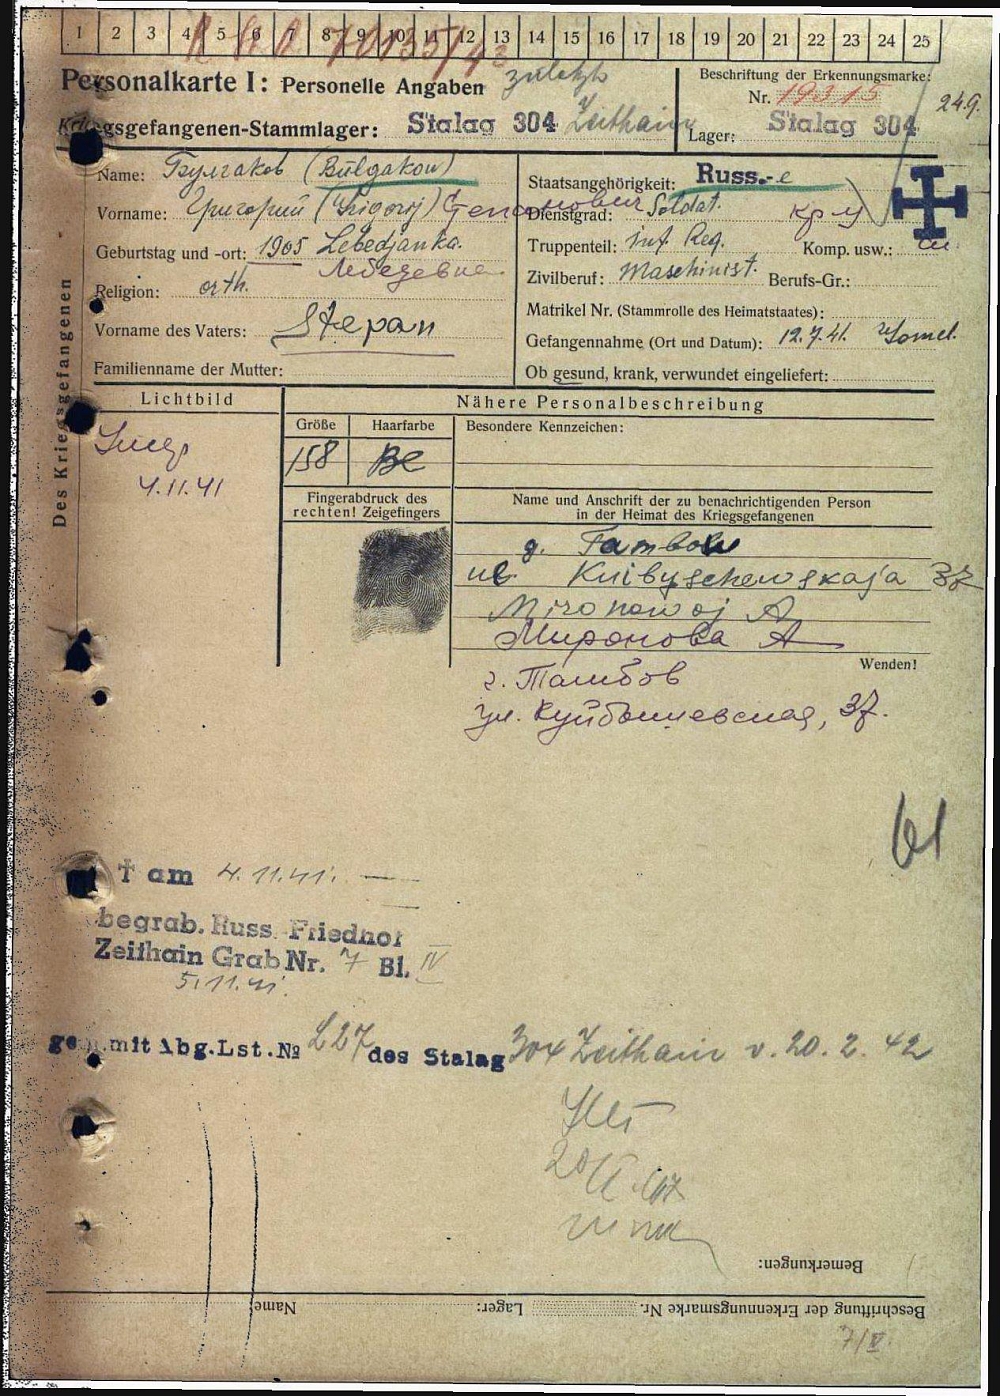 1 2 3 4 5 6 7 8 9 10 11 12 13 14 15 16 17 18 19 20 21 22 23 24 25
Personalkarte I: Personelle Angaben zuletzt
Kriegsgefangenen-Stammlager: Stalag 304 Zeithain
Beschriftung der Erkennungsmarke:
Nr. 19315
Lager: Stalag 304
24.9.
Des Kriegsgefangenen
Name: Булгаков (Bulgakow)
Vorname: Григорий (Grigorij) Степанович
Geburtstag und -ort: 1905 Lebedjanka.
Religion: orth.
Vorname des Vaters: Stepan
Familienname der Mutter:
Staatsangehörigkeit: Russ.-e
Dienstgrad: Soldat.
Truppenteil: inf. Reg. Komp. usw.:
Zivilberuf: Maschinist. Berufs-Gr.:
Matrikel Nr. (Stammrolle des Heimatstaates):
Gefangennahme (Ort und Datum): 12.7.41. Gomel.
Ob gesund, krank, verwundet eingeliefert:
Lichtbild
Умер
4.11.41
Nähere Personalbeschreibung
Größe Haarfarbe Besondere Kennzeichen:
158
Fingerabdruck des
rechten! Zeigefingers
Name und Anschrift der zu benachrichtigenden Person
in der Heimat des Kriegsgefangenen
g. Tambow
ul. Kuibyschewskaja 37
Mironowoj A
Миронова А
Wenden!
г. Тамбов
ул. Куйбышевская, 37.
61
† am 4.11.41.
begrab. Russ. Friedhof
Zeithain Grab Nr. 7 Bl. IV
5.11.41.
gem. mit Abg.Lst.№ L27 des Stalag 304 Zeithain v. 20. 2. 42
Bemerkungen:
Beschriftung der Erkennungsmarke Nr. Lager: Name:
7/IV